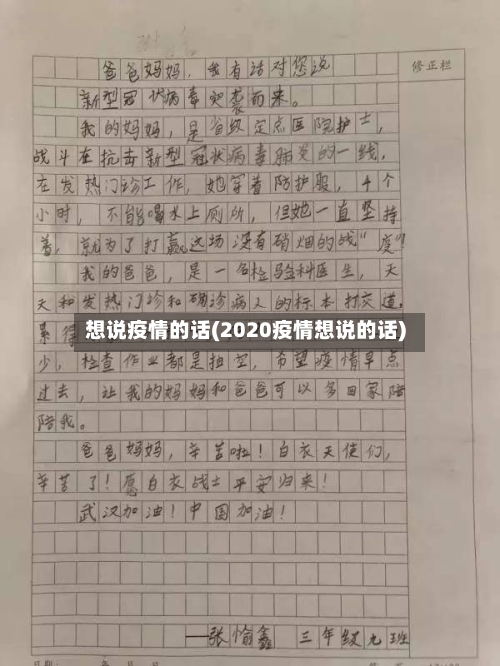 爸爸妈妈，我有话对您说
修正栏
新型冠状病毒突袭而来。
我的妈妈，是省级定点医院护士，
战斗在抗击新型冠状病毒肺炎的一线，
在发热门诊工作，她穿着防护服，4个
小时，不能喝水上厕所，但她一直坚持
着，就为了打赢这场没有硝烟的战"度"！
我的爸爸，是一名检验科医生，天
天和发热门诊和确诊病人的标本打交道，
累得
想说疫情的话(2020疫情想说的话)
少，检查作业都是抽空，希望疫情早点
过去，让我的妈妈和爸爸可以多回家陪
陪我。
爸爸妈妈，辛苦啦！白衣天使们，
辛苦了！愿白衣战士平安归来！
武汉加油！中国加油！
——张愉鑫 三年级九班